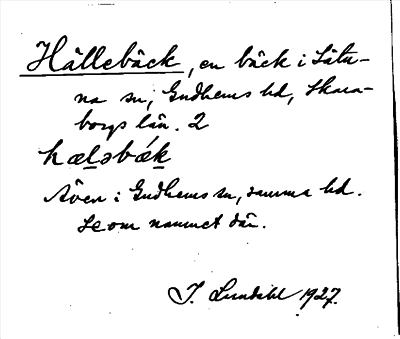 Hällebäck, en bäck i Sätu-
na sn, Gudhems hd, Skara-
borgs län. 2
hæḻəbǽḵ
Även i Gudhems sn, samma hd.
Se om namnet där.
I. Lundahl 1927.